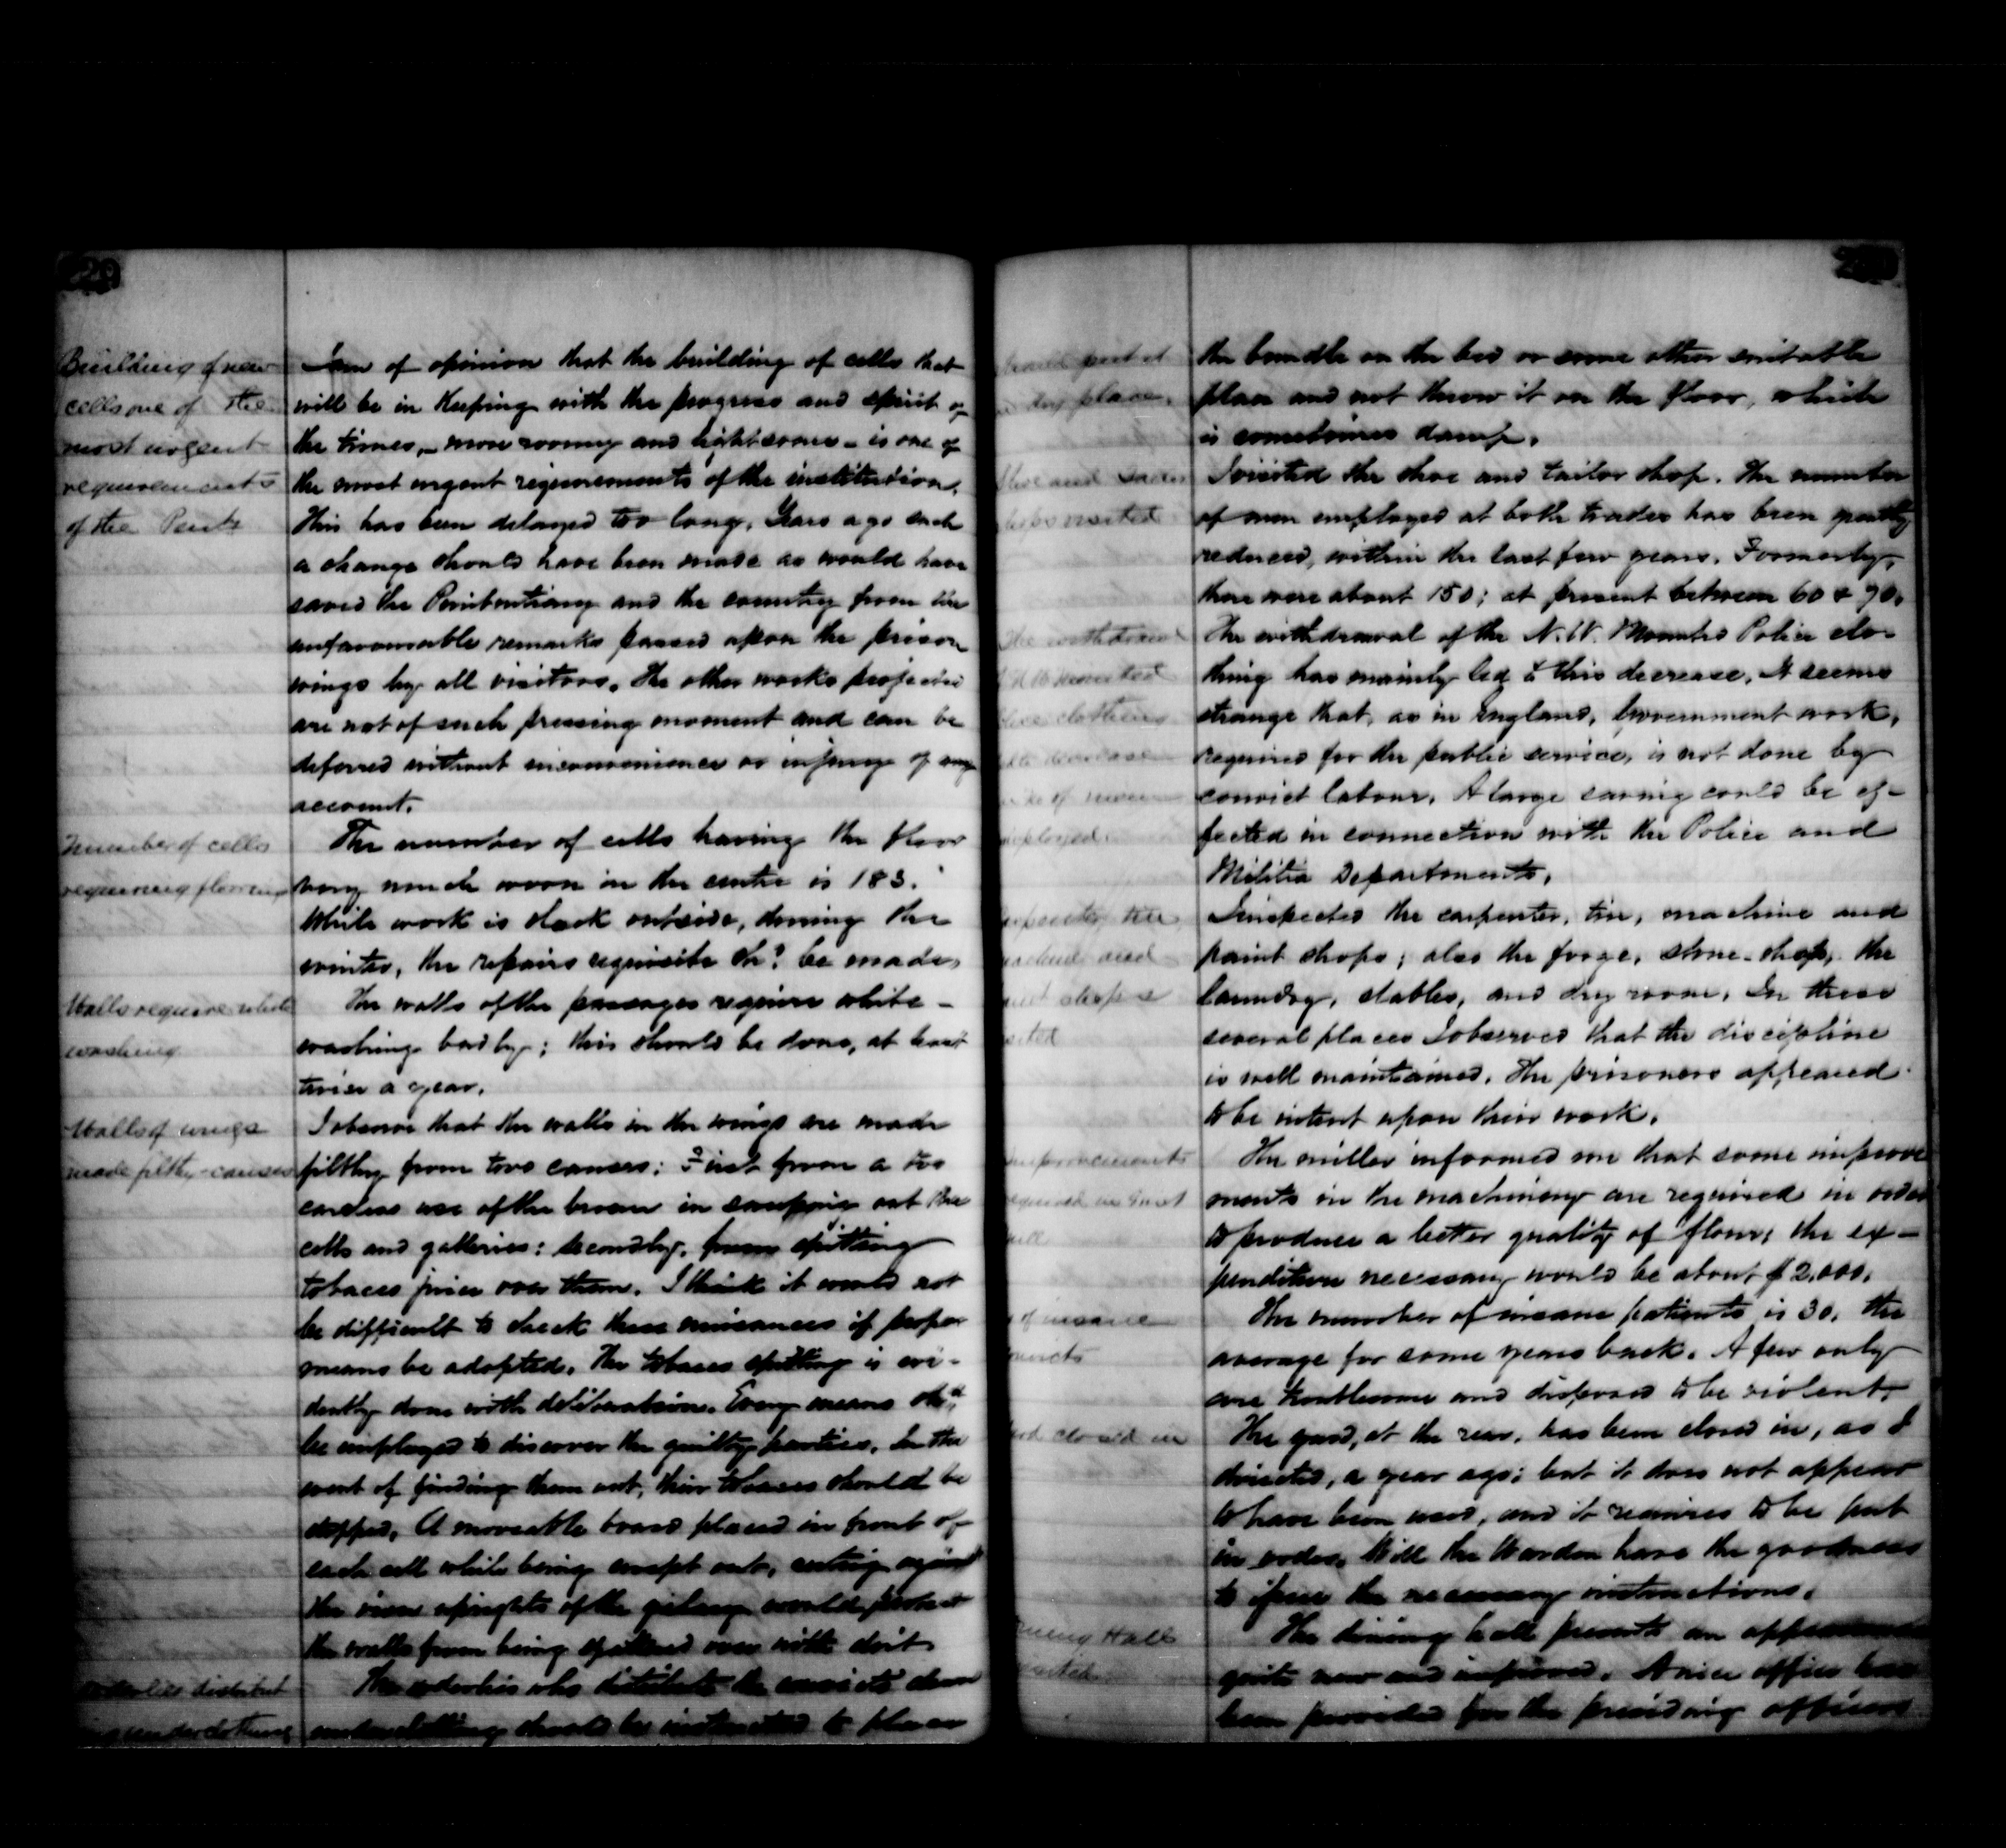 Building of new
cells one of the
most urgent
requirements
of the Penty
I am of opinion that the building of cells that
will be in keeping with the progress and spirit of
the times, - more roomy and lightsome - is one of
the most urgent requirements of the institution.
This has been delayed too long. Years ago such
a change should have been made as would have
saved the Penitentiary and the country from the
unfavourable remarks passed upon the prison
wings by all visitors. The other works projected
are not of such pressing moment and can be
deferred without inconvenience or injury of any
account.
Number of cells
requiring flooring
The number of cells having the floor
very much worn in the centre is 183.
While work is slack outside, during the
winter, the repairs requisite shd be made.
Walls require white
washing
The walls of the passages require white-
washing badly; this should be done, at least
twice a year.
Walls of wings
made filthy - causes
I observe that the walls in the wings are made
filthy from two causes: First from a too
careless use of the broom in sweeping out the
cells and galleries: secondly, from spitting
tobacco juice over them. I think it would not
be difficult to check these nuisances if proper
means be adopted. The tobacco spitting is evi-
dently done with deliberation. Every means shd
be employed to discover the guilty parties. In the
event of finding them out, their tobacco should be
stopped. A moveable board placed in front of
each cell while being swept out, resting against
the iron uprights of the gallery would protect
the walls from being spattered over with dirt.
orderlies distribut
ing underclothing
The orderlies who distribute the convicts' clean
underclothing should be instructed to place
should put it
dry place.
the bundle on the bed or some other suitable
place and not throw it on the floor, which
is sometimes damp.
Shoe and Tailor
shops visited
I visited the shoe and tailor shop. The number
of men employed at both trades has been greatly
reduced, within the last few years. Formerly,
there were about 150; at present between 60 & 70.
The withdrawal
N. W. Mounted
Police clothing
decrease
of men
employed.
The withdrawal of the N. W. Mounted Police clo-
thing has mainly led to this decrease. It seems
strange that, as in England, Government work,
required for the public service, is not done by
convict labour. A large saving could be ef-
fected in connection with the Police and
Militia Departments.
carpenter, tin
machine and
paint shops
visited
I inspected the carpenter, tin, machine and
paint shops; also the forge, stone-shop, the
laundry, stables, and dry room. In these
several places I observed that the discipline
is well maintained. The prisoners appeared
to be intent upon their work.
improvements
required in Grist
mill
The miller informed me that some improve
ments in the machinery are required in order
to produce a better quality of flour; the ex-
penditure necessary would be about $2,000.
of insane
convicts
The number of insane patients is 30, the
average for some years back. A few only
are troublesome and disposed to be violent.
yard closed in
The yard, at the rear, has been closed in, as I
directed, a year ago; but it does not appear
to have been used, and it requires to be put
in order. Will the Warden have the goodness
to issue the necessary instructions.
Dining Hall
visited
The dining hall presents an appearance
quite new and improved. A nice office has
been provided for the presiding officer